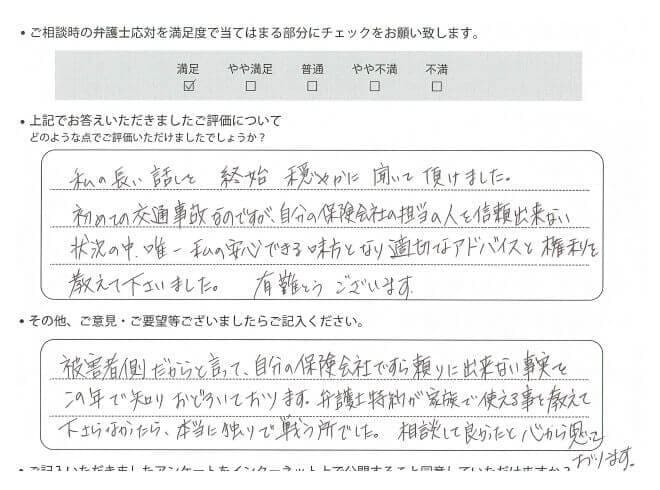 ・ご相談時の弁護士応対を満足度で当てはまる部分にチェックをお願い致します。
満足 やや満足 普通 やや不満 不満
☑ □ □ □ □
・上記でお答えいただきましたご評価について
どのような点でご評価いただけましたでしょうか？
私の長い話しを 終始 穏やかに 聞いて 頂けました。
初めての交通事故なのですが、自分の保険会社の担当の人を信頼出来ない
状況の中、唯一私の安心できる味方となり適切なアドバイスと権利を
教えて下さいました。 有難とうございます。
・その他、ご意見・ご要望等ございましたらご記入ください。
被害者側だからと言って、自分の保険会社ですら頼りに出来ない事実を
この年で知りおどろいております。弁護士特約が家族で使える事を教えて
下さらなかったら、本当に独りで戦う所でした。 相談して良かったと心から思って
おります。
・ご記入いただきましたアンケートをインターネット上で公開すること同意していただけますか？